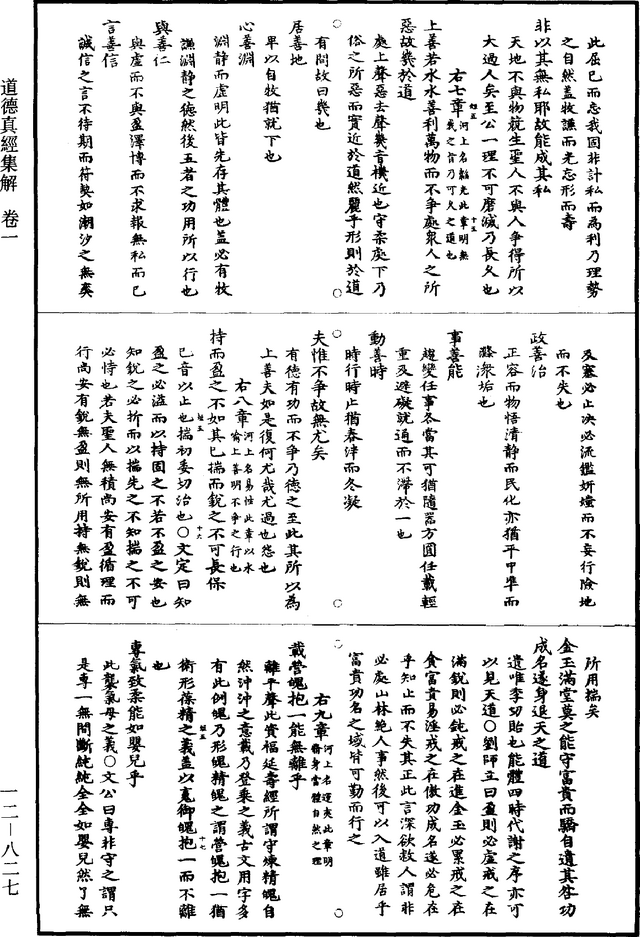 此屈己而忘我固非計私而為利乃理勢
之自然蓋牧謙而光忘形而壽
非以其無私耶故能成其私
天地不與物競生聖人不與人爭得所以
大過人矣至公一理不可磨滅乃長久也
右七章河上名韜光此章明無我之旨乃可久之道也
上善若水水善利萬物而不爭處眾人之所
惡故幾於道
處上聲惡去聲幾音機近也守柔處下乃
俗之所惡而實近於道然麗乎形則於道
有間故曰幾也
居善地
卑以自牧猶就下也
心善淵
淵靜而虛明此皆先存其體也蓋必有牧
謙淵靜之德然後五者之功用所以行也
與善仁
與虛而不與盈澤博而不求報無私而已
言善信
誠信之言不待期而符契如潮汐之無爽
及塞必止決必流鑑妍媸而不妄行險地
而不失也
政善治
正容而物悟清靜而民化亦猶平中準而
滌眾垢也
事善能
趨變任事各當其可猶隨器方圓任載輕
重及避礙就通而不滯於一也
動善時
時行時止猶春泮而冬凝
夫惟不爭故無尤矣
有德有功而不爭乃德之至此其所以為
上善夫如是復何尤哉尤過也怨也
右八章河上名易性此章以水喻上善明不爭之行也
持而盈之不如其已揣而銳之不可長保
已音以止也揣初委切治也○文定曰知
盈之必溢而以持固之不若不盈之安也
知銳之必折而以揣先之不知揣之不可
必恃也若夫聖人無積尚安有盈循理而
行尚安有銳無盈則無所用持無銳則無
所用揣矣
金玉滿堂莫之能守富貴而驕自遺其咎功
成名遂身退天之道
遺唯季切貽也能體四時代謝之序亦可
以見天道○劉師立曰盈則必虛戒之在
滿銳則必鈍戒之在進金玉必累戒之在
貪富貴易淫戒之在傲功成名遂必危在
乎知止而不失其正此言深欲救人謂非
必處山林絕人事然後可以入道雖居乎
富貴功名之域皆可勤而行之
右九章河上名運夷此章明儕身當體自然之理
載營魄抱一能無離乎
離平聲此黃福延壽經所謂守煉精魄自
然沖沖之意載乃登乘之義古文用字多
有此例魄乃形魄精魄之謂營魄抱一猶
衛形葆精之義蓋以魂御魄抱一而不離
也
專氣致柔能如嬰兒乎
此襲氣母之義○文公曰專非守之謂只
是專一無間斷純純全全如嬰兒然了無
道德真經集解　卷一
一二—八二七